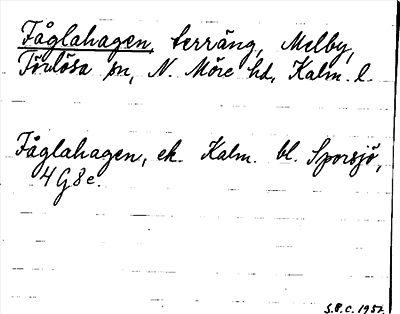 Fåglahagen, terräng, Melby,
Förlösa sn, N. Möre hd, Kalm. l.
Fåglahagen, ek. Kalm. bl. Sporsjö,
4G8e.
S.P.C. 1957.